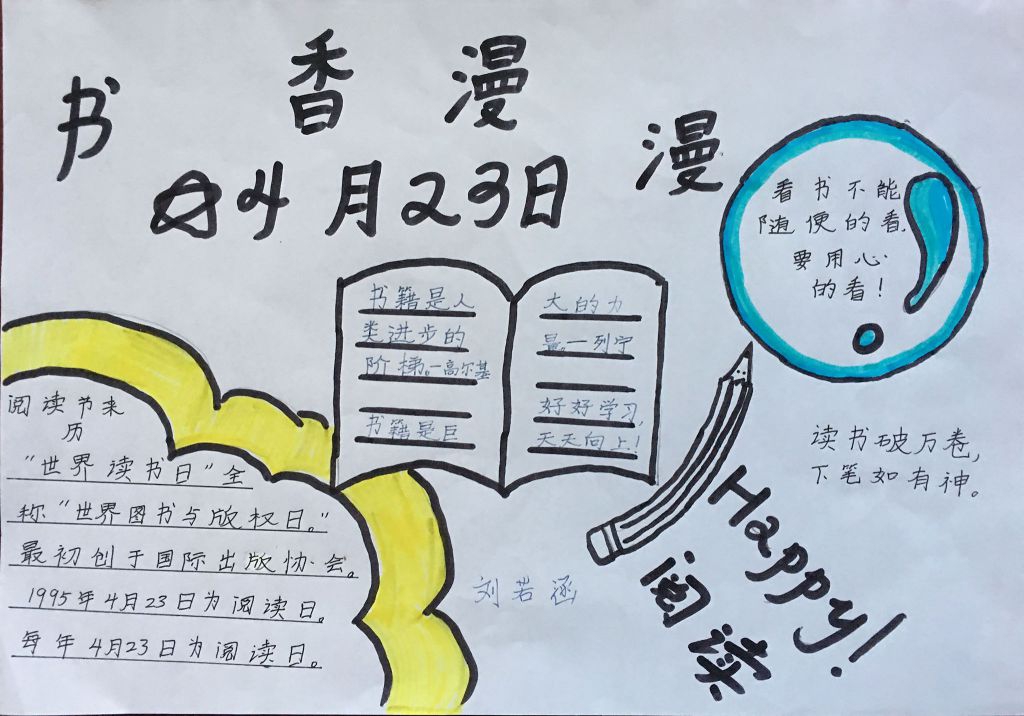 书香漫漫
04月23日
看书不能
随便的看,
要用心
的看!
书籍是人
类进步的
阶梯。一高尔基
书籍是巨
大的力
量。一列宁
好好学习,
天天向上!
阅读书来
历
"世界读书日"全
称"世界图书与版权日。"
最初创于国际出版协会。
1995年4月23日为阅读日。
每年4月23日为阅读日。
读书破万卷,
下笔如有神。
刘若涵
Happy!
阅读